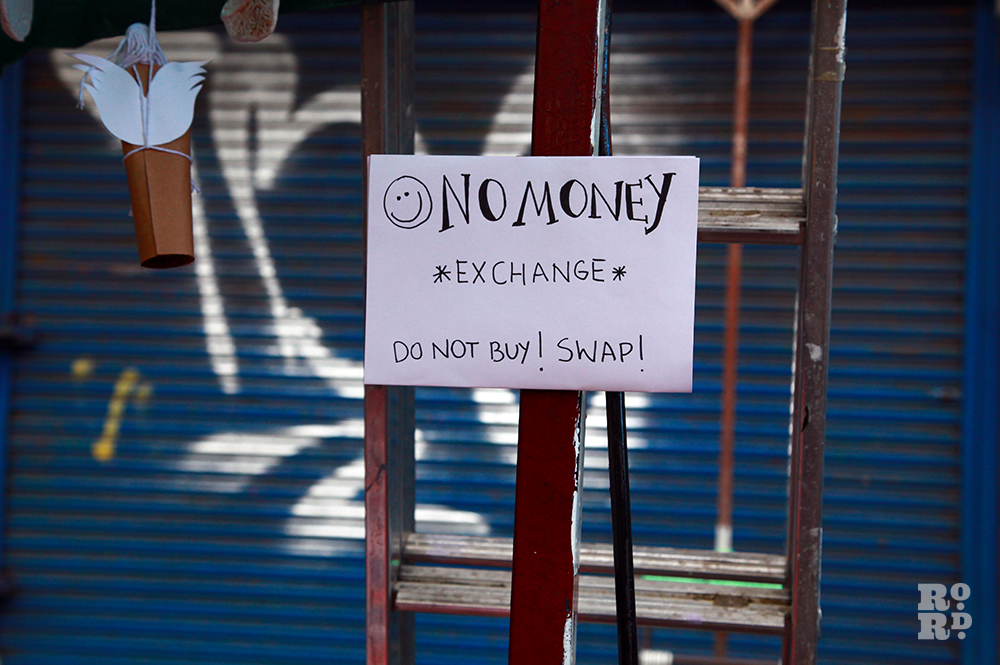 NO MONEY
*EXCHANGE*
DO NOT BUY! SWAP!
RO.
RD.